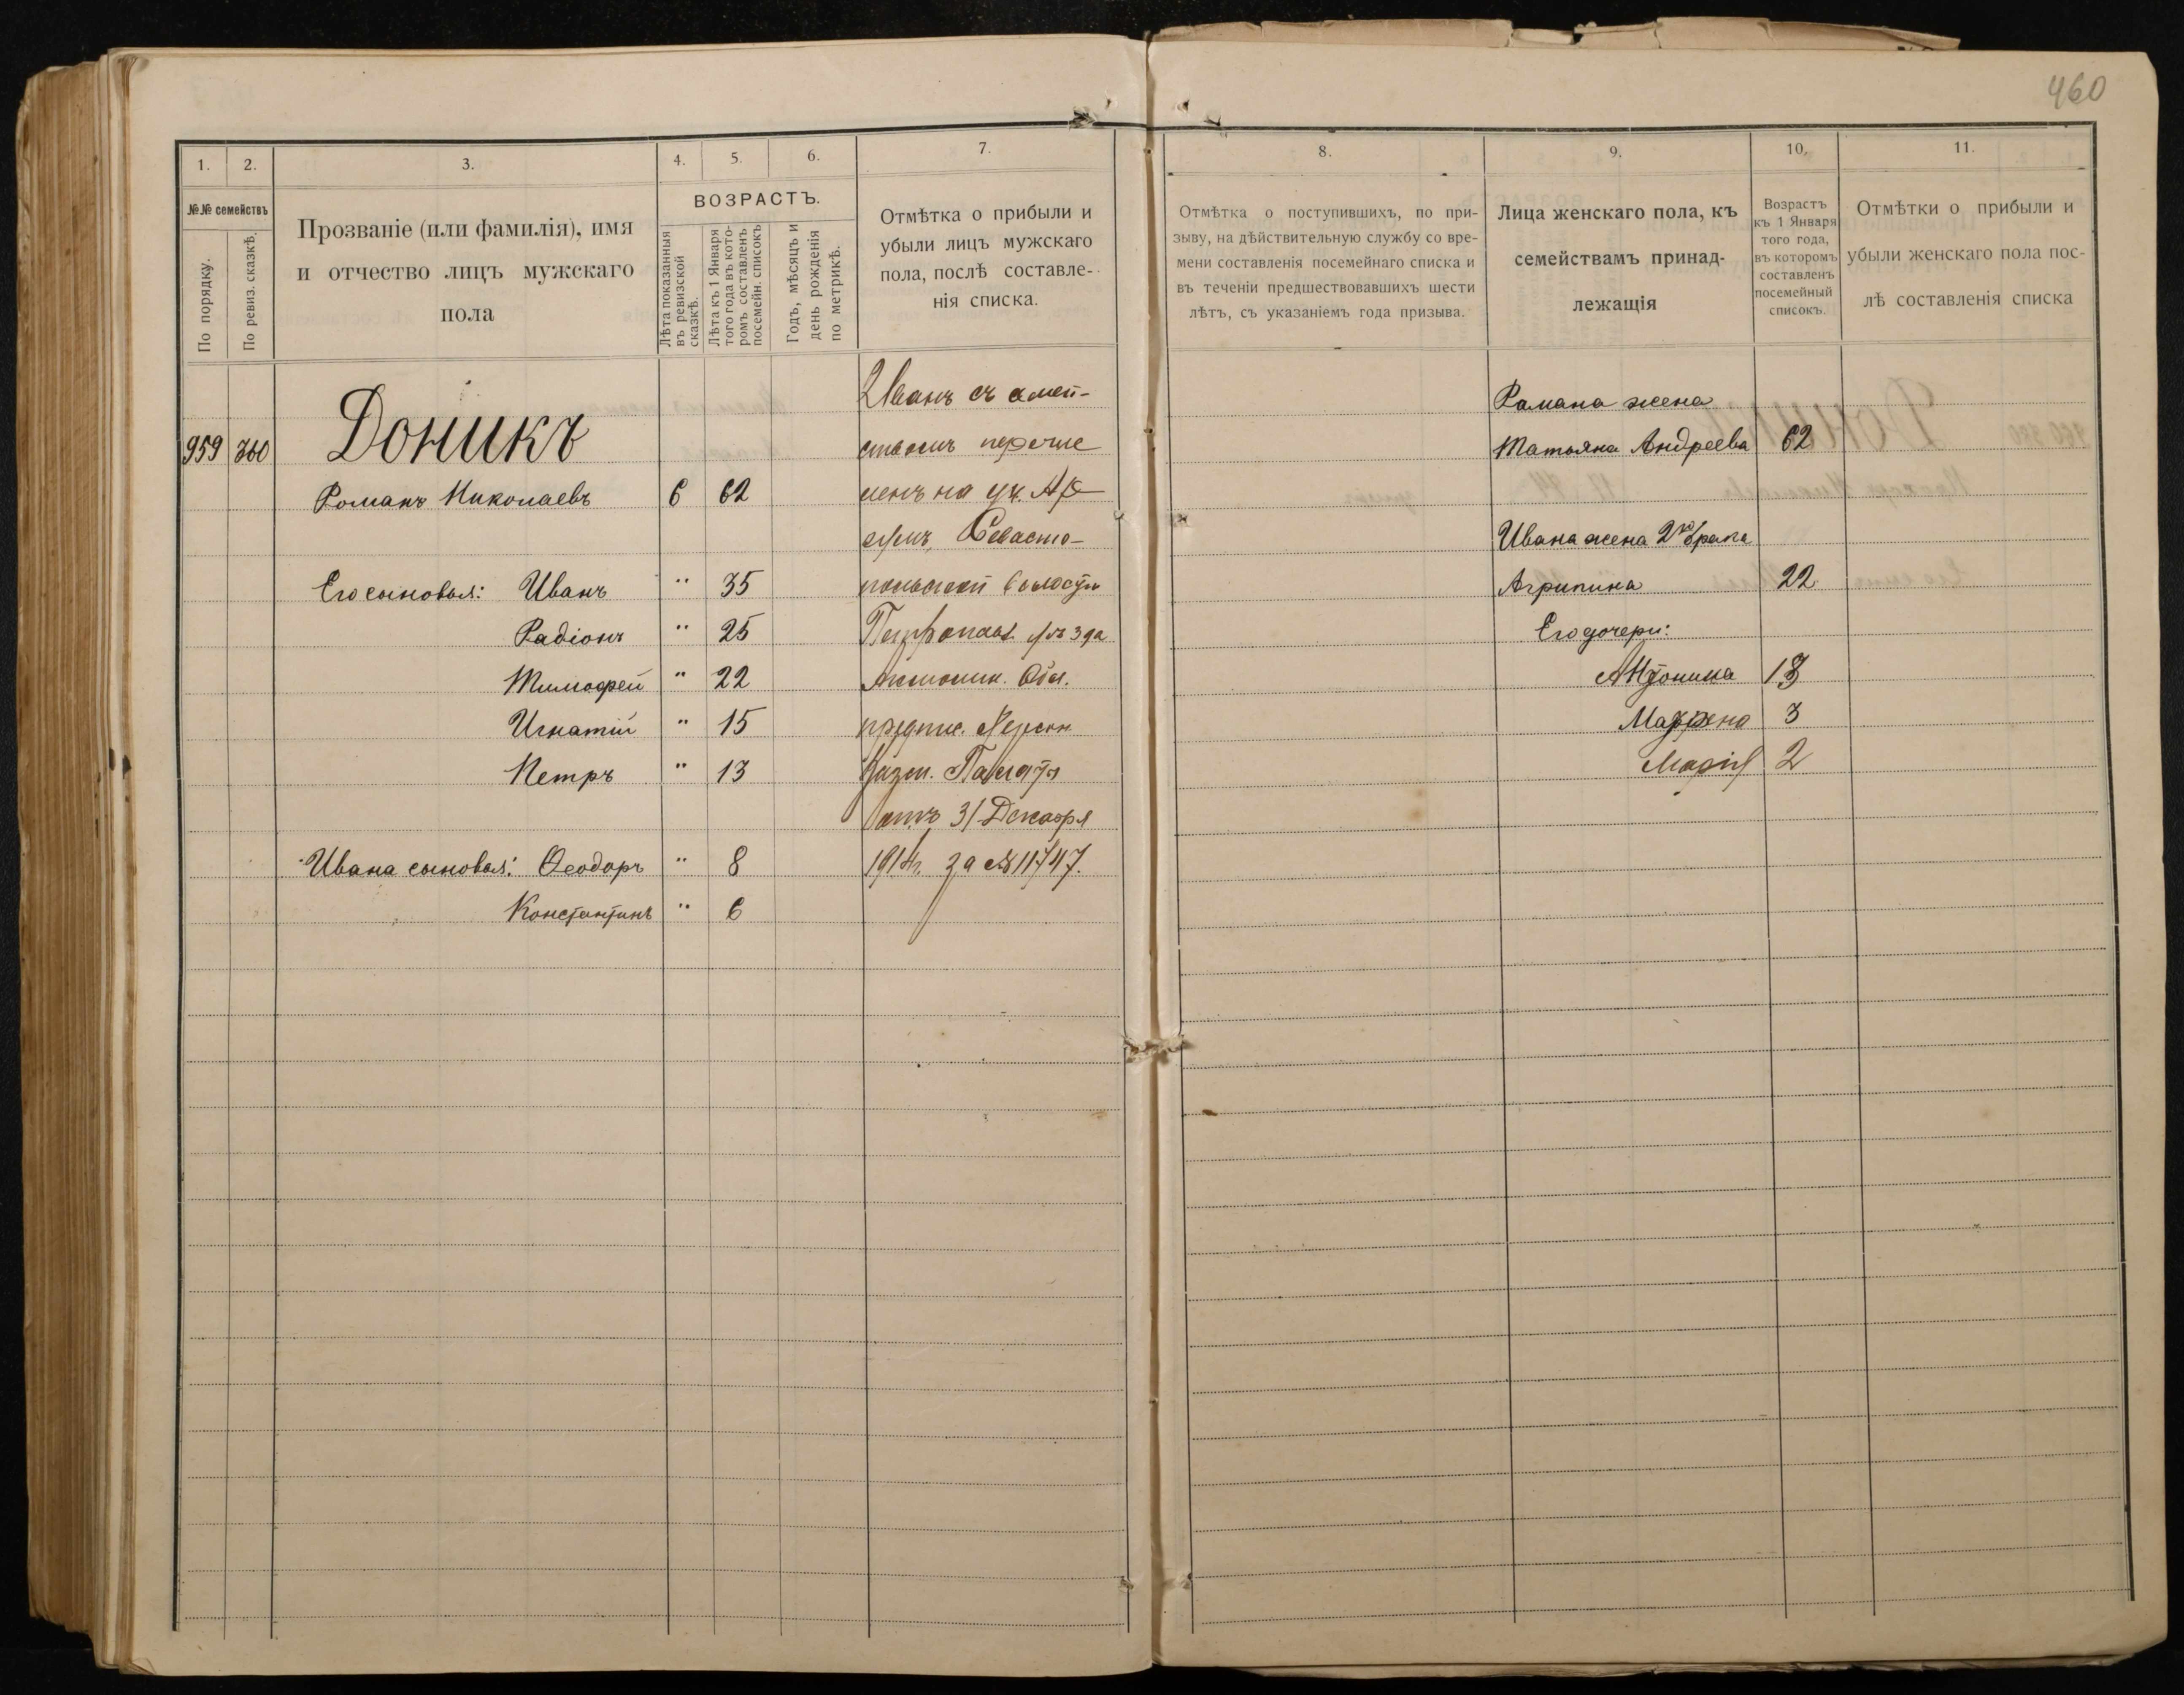 460
1.
2.
3.
4.
5.
6.
7.
№№ семействъ
По порядку.
По ревиз. сказкѣ.
Прозваніе (или фамилія), имя
и отчество лицъ мужскаго
пола
ВОЗРАСТЪ.
Лѣта показанныя
въ ревизской
сказкѣ.
Лѣта къ 1 Января
того года въ кото-
ромъ составленъ
посемейн. списокъ
Годъ, мѣсяцъ и
день рожденія
по метрикѣ.
Отмѣтка о прибыли и
убыли лицъ мужскаго
пола, послѣ составле-
нія списка.
959 360 Доникъ
Романъ Николаевъ 6 62
Его сыновья: Иванъ " 35
Радіонъ " 25
Тимофей " 22
Игнатій " 15
Петръ " 13
Ивана сыновья: Ѳеодоръ " 8
Константинъ " 6
Иванъ съ семей-
ствомъ перечис
ленъ на уч.
Севасто-
польской волости
Петропавл. уѣзда
Акмолин. Обл.
предпис. Херсон
Казен. Палаты
отъ 31 Декабря
за № 11747.
8.
9.
10.
11.
Отмѣтка о поступившихъ, по при-
зыву, на дѣйствительную службу со вре-
мени составленія посемейнаго списка и
въ теченіи предшествовавшихъ шести
лѣтъ, съ указаніемъ года призыва.
Лица женскаго пола, къ
семействамъ принад-
лежащія
Возрастъ
къ 1 Января
того года,
въ которомъ
составленъ
посемейный
списокъ.
Отмѣтки о прибыли и
убыли женскаго пола пос-
лѣ составленія списка
Романа жена
Татьяна Андреева 62
Ивана жена 2го брака
Агрипина 22
Его дочери:
Антонина 13
Марфена 3
Марія 2